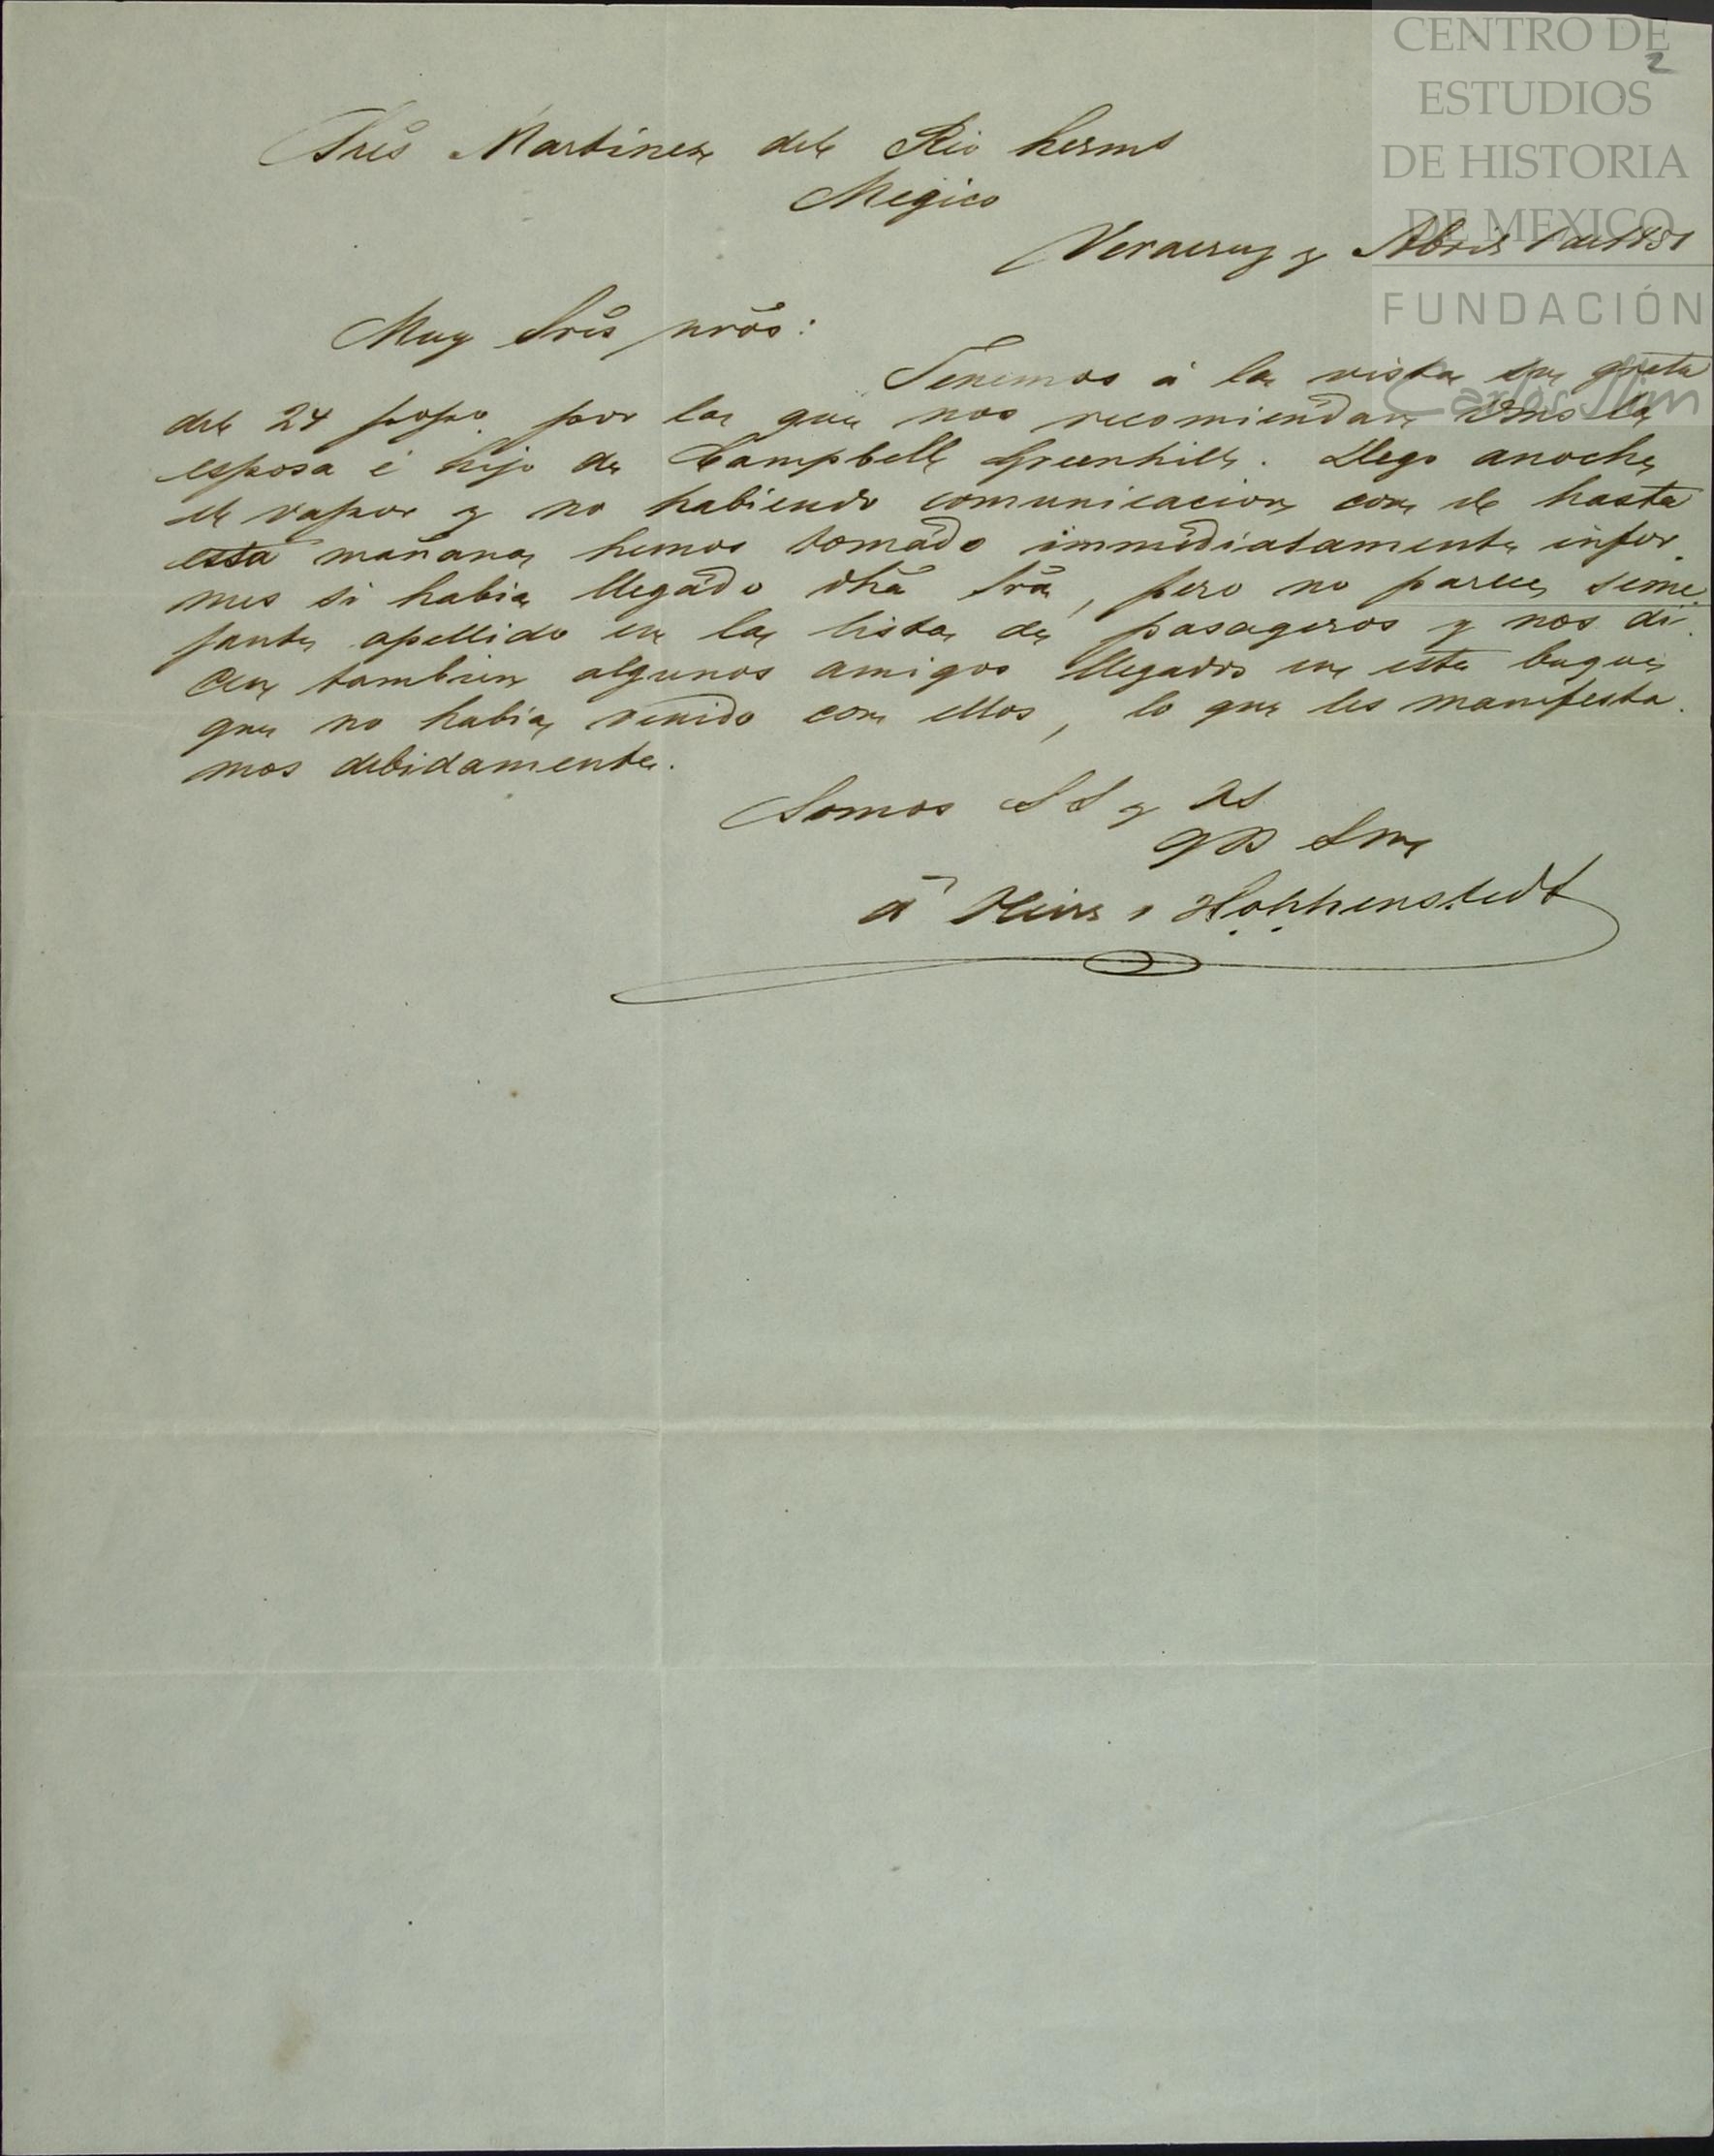 CENTRO DE
2
ESTUDIOS
DE HISTORIA
DE MEXICO
FUNDACIÓN
Carlos Slim
Sres Martinez del Rio herms
Megico
Veracruz y Abril 1 de 1851
Muy Sres nros:
Tenemos á la vista su grata
del 24 ppo. por la que nos recomiendan Vms la
esposa é hijo de Campbell Greenhill. Llego anoche
el vapor y no habiendo comunicacion con el hasta
esta mañana hemos tomado immediatamente infor
mes si habia llegado dha Sra, pero no parece seme
jante apellido en la lista de pasageros y nos di
cen tambien algunos amigos llegados en este buque
que no habia venido con ellos, lo que les manifesta
mos debidamente.
Somos S S y As
q B S M
Hoppenstedt